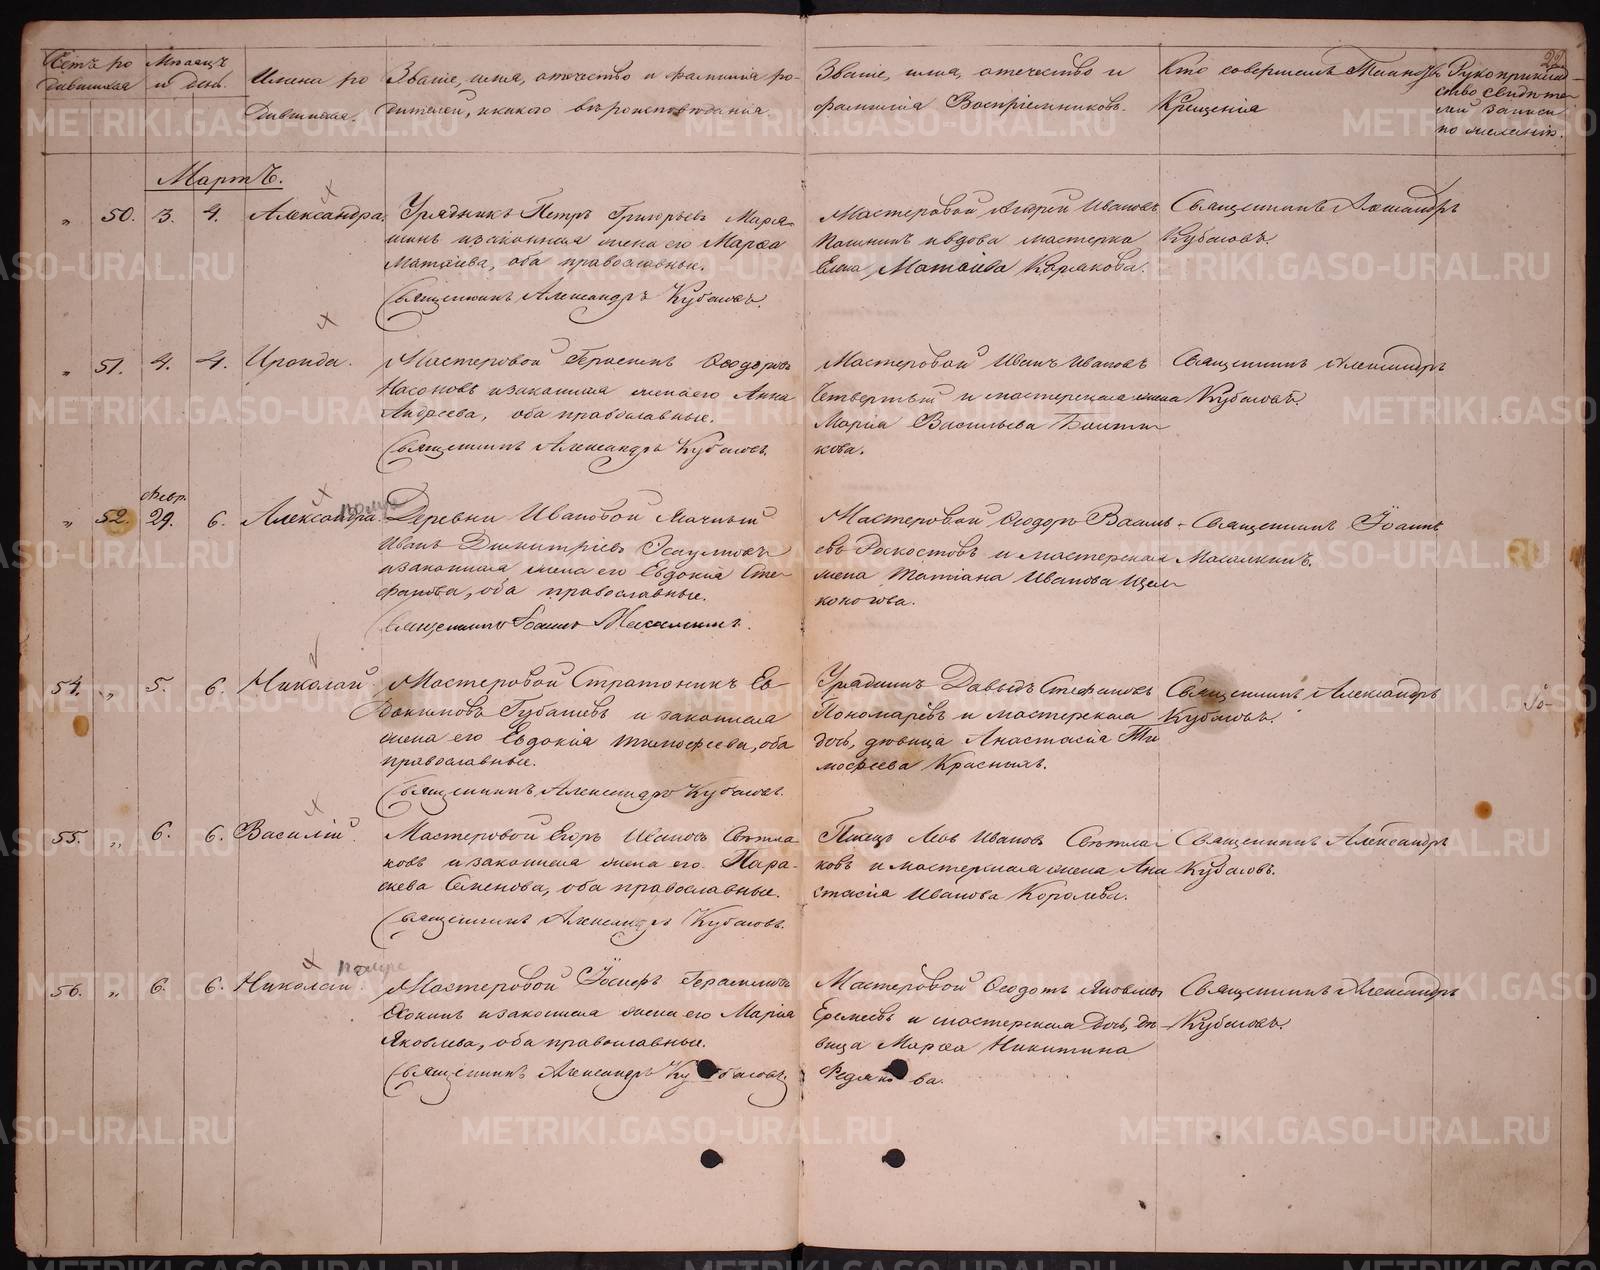 Счетъ ро
дившихся
Мѣсяцъ
и день.
Имена ро
дившихся.
Званіе, имя, отечество и фамилія ро-
дителей, и какого вѣроисповѣданія
Званіе, имя, отечество и
фамилія Воспріемниковъ.
Кто совершалъ Таинство
Крещенія
Рукоприклад-
ство свидѣте-
лей записи
по желанію.
Мартъ.
50. 3. 4. Александра.
Урядникъ Петръ Григорьевъ
и законная жена его Марѳа
Матѳіева, оба православные.
Священникъ Александръ Кубасовъ.
Мастеровой Андрей Ивановъ
и вдова мастерка
Матѳіева Корякова.
Священникъ Александръ
Кубасовъ.
51. 4. 4. Ираида.
Мастеровой Герасимъ Ѳеодоровъ
Насоновъ и законная жена его Анна
Андреева, оба православные.
Священникъ Александръ Кубасовъ.
Мастеровой Иванъ Ивановъ
Четвертый и мастерская жена
Марія Васильева
кова.
Священникъ Александръ
Кубасовъ.
Февр.
52. 29. 6. Александра
Деревни Ивановой
Иванъ Димитріевъ
и законная жена его Евдокія Сте-
фанова, оба православные.
Священникъ Іоаннъ
Мастеровой Ѳеодоръ Василь-
евъ и мастерская
жена Татіана Иванова Щел-
коногова.
Священникъ Іоаннъ
54. " 5. 6. Николай
Мастеровой Стратоникъ Ев
докимовъ Губашевъ и законная
жена его Евдокія Тимоѳеева, оба
православные.
Священникъ Александръ Кубасовъ.
Урядникъ Давыдъ Стефановъ
Пономаревъ и мастерская
дочь, дѣвица Анастасія Ти
моѳеева Красныхъ.
Священникъ Александръ
Кубасовъ.
55. " 6. 6. Василій
Мастеровой Егоръ Ивановъ Свѣтла
ковъ и законная жена его Пара-
скева Семенова, оба православные.
Священникъ Александръ Кубасовъ.
Левъ Ивановъ Свѣтла-
ковъ и мастерская жена Ана
стасія Иванова Королева.
Священникъ Александръ
Кубасовъ.
56. " 6. 6. Николай
помре
Мастеровой Іосифъ Герасимовъ
и законная жена его Марія
Яковлева, оба православные.
Священникъ Александръ Кубасовъ.
Мастеровой Ѳеодотъ
Еремеевъ и мастерская дочь, дѣ-
вица Марѳа Никитина
Федякова.
Священникъ Александръ
Кубасовъ.
METRIKI.GASO-URAL.RU